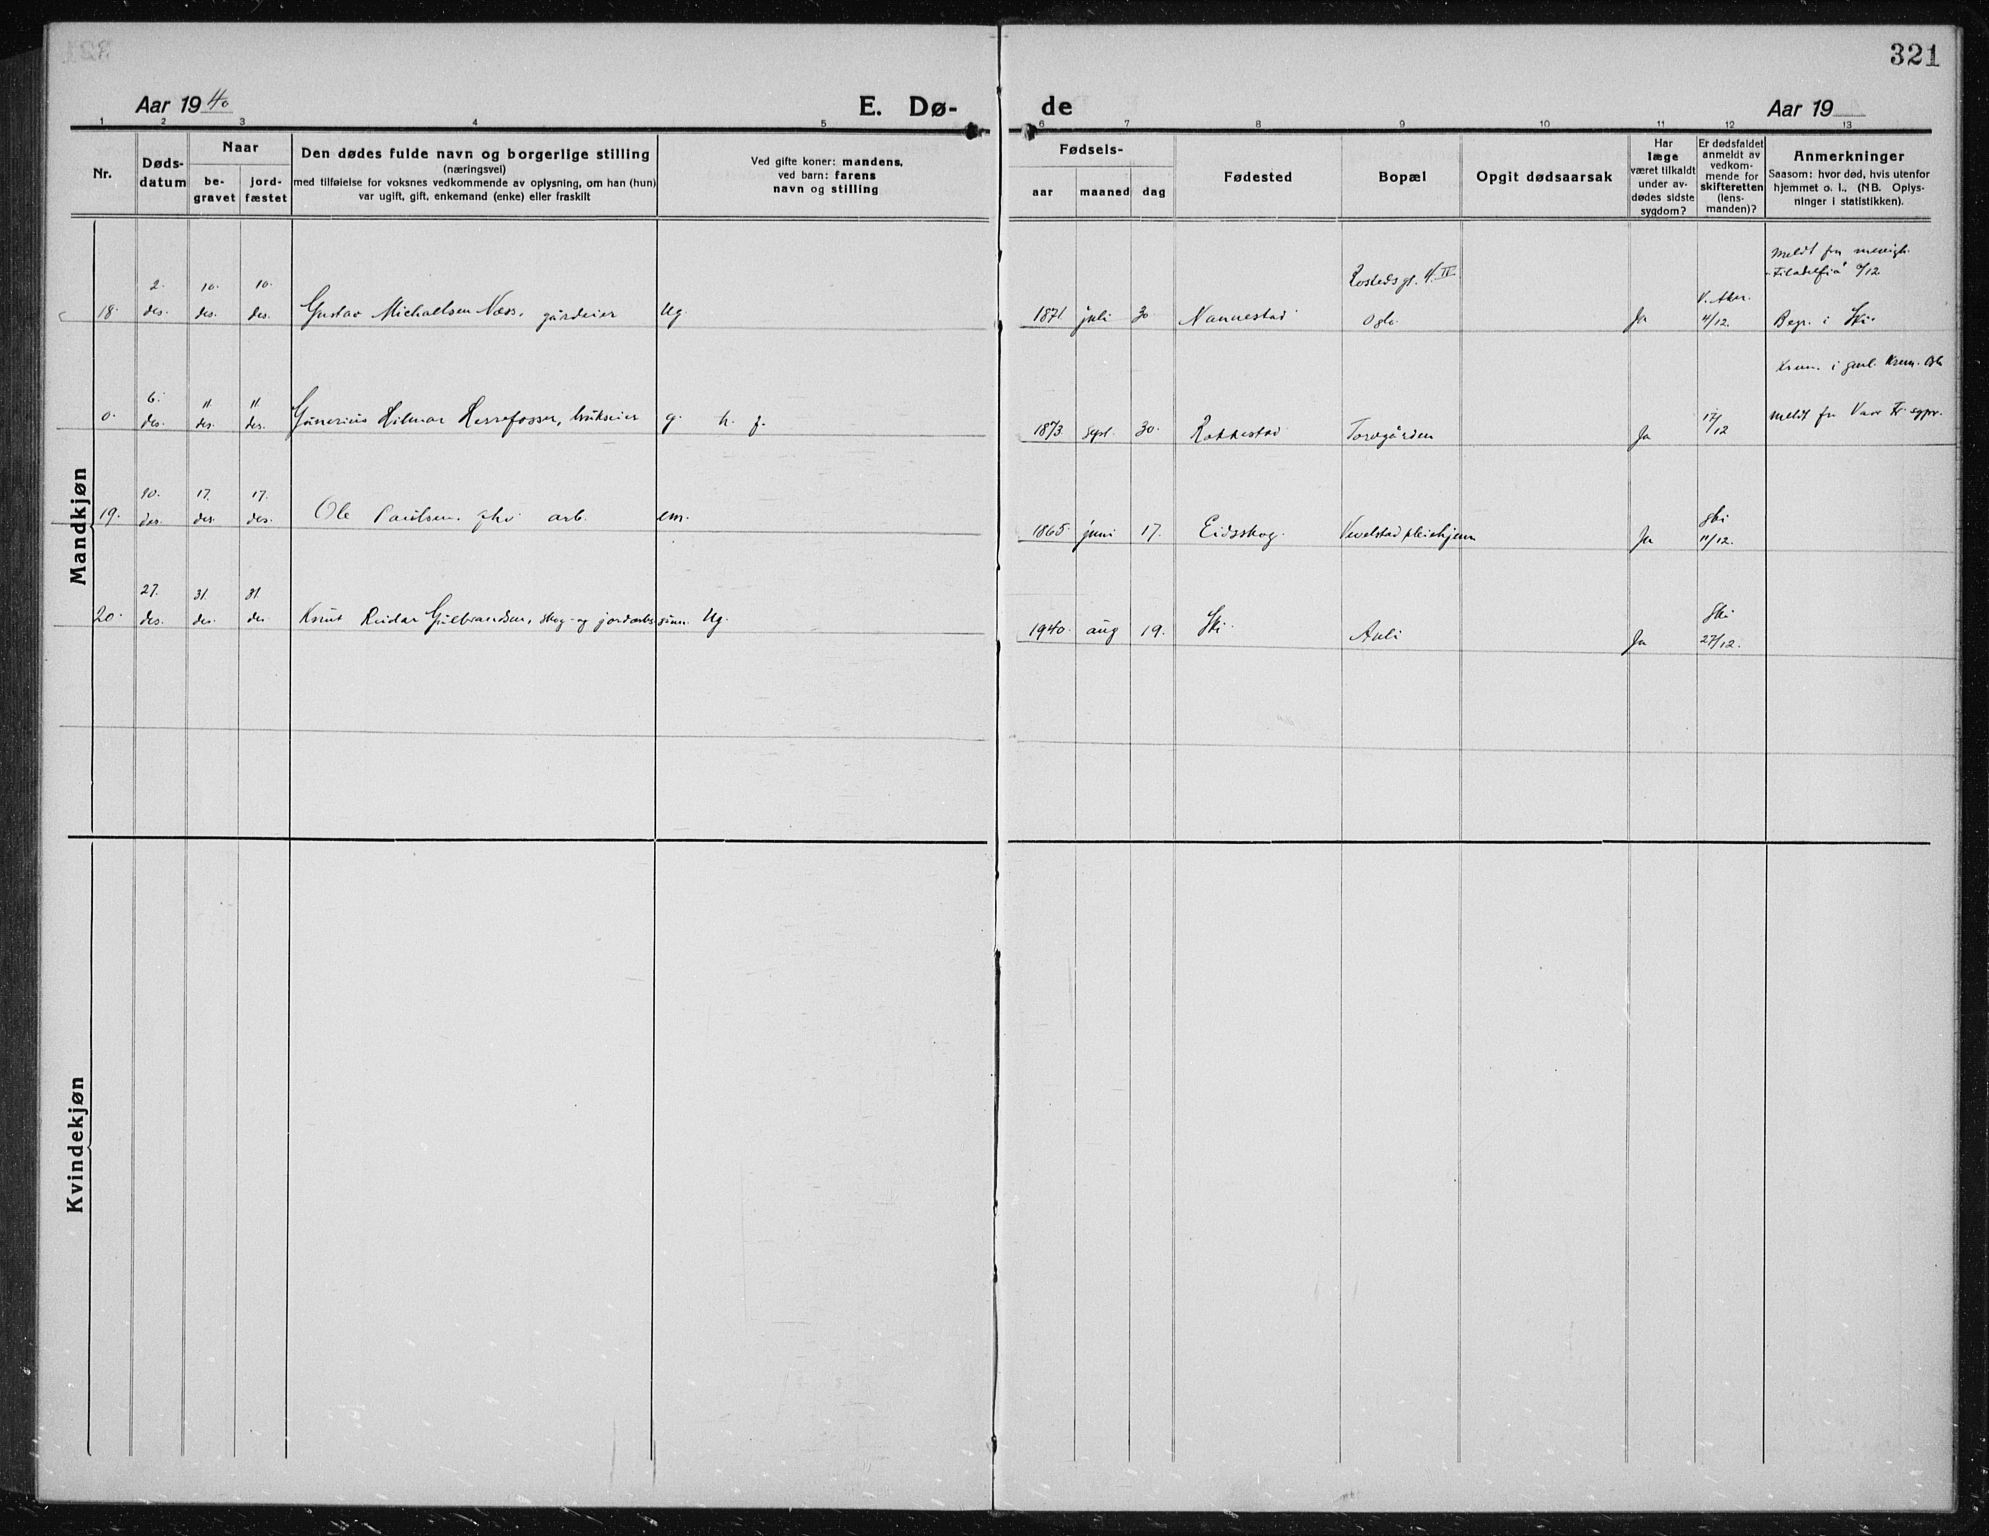 321
Aar 19 40
E. Dø-
de
Aar 19
1 2 3 4 5 6 7 8 9 10 11 12 13
Nr.
Døds-
datum
Naar
be-
gravet
jord-
fæstet
Den dødes fulde navn og borgerlige stilling
(næringsvei)
med tilføielse for voksnes vedkommende av oplysning, om han (hun)
var ugift, gift, enkemand (enke) eller fraskilt
Ved gifte koner: mandens,
ved barn: farens
navn og stilling
Fødsels-
aar
maaned
dag
Fødested
Bopæl
Opgit dødsaarsak
Har
læge
været tilkaldt
under av-
dødes sidste
sygdom?
Er dødsfaldet
anmeldt av
vedkom-
mende for
skifteretten
(lens-
manden)?
Anmerkninger
Saasom: hvor død, hvis utenfor
hjemmet o. l., (NB. Oplys-
ninger i statistikken).
Mandkjøn
2. 10. 10.
18. des. des. des. Gustav Michaelsen Næss, gårdeier Ug.
1871 juli 30 Nannestad
Oslo Ja
V. Aker.
4/12.
Meldt fra menigh.
Filadelfia
Begr. i Ski
6. 11. 11.
0. des. des. des. Gunerius Hilmar Herrefosser, brukseier g. h. f.
1873 sept. 30. Rakkestad Torvgården Ja
17/12
Krem. i gml. Krem.
meldt fra
10. 17. 17.
19. des. des. des. Ole Paulsen, arb. em.
1865 juni 17. Eidsskog. Vevelstad pleiehjem Ja
Ski
11/12.
27. 31. 31.
20. des. des. des. Knut Reidar Gulbrandsen, skog- og jordarb. sønn. Ug.
1940. aug 19. Ski. Auli Ja
Ski
27/12.
Kvindekjøn